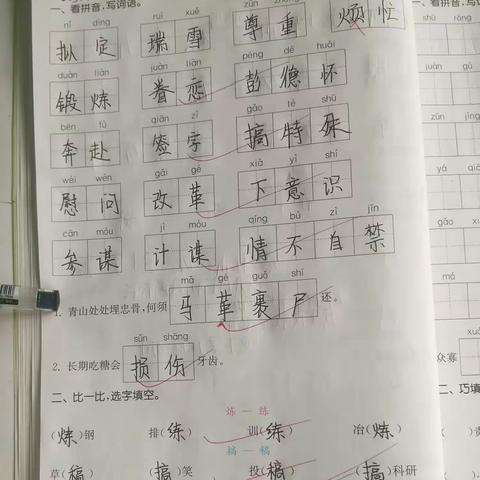 一、看拼音，写词语。
nǐ dìng ruì xuě zūn zhòng
拟定 瑞雪 尊重 烦忙
duàn liàn juàn liàn péng dé huái
锻炼 眷恋 彭德怀
bēn fù qiān zì gǎo tè shū
奔赴 签字 搞特殊
wèi wèn gǎi gé xià yì shí
慰问 改革 下意识
cān móu jì móu qíng bú zì jīn
参谋 计谋 情不自禁
mǎ gé guǒ shī
1. 青山处处埋忠骨，何须马革裹尸还。
sǔn shāng
2. 长期吃糖会损伤牙齿。
二、比一比，选字填空。
炼 — 练
（炼）钢 排（练） 训（练） 冶（炼）
搞 — 稿
草（稿） （搞）笑 投（稿） （搞）科研
一、看拼音，写
shū róng
juàn
zūn jìng
gǎo
mó
众寡
二、巧填
（ ）责